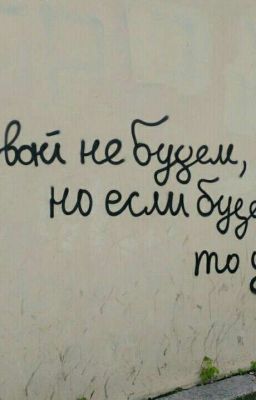 вой не будем,
но если буде
то